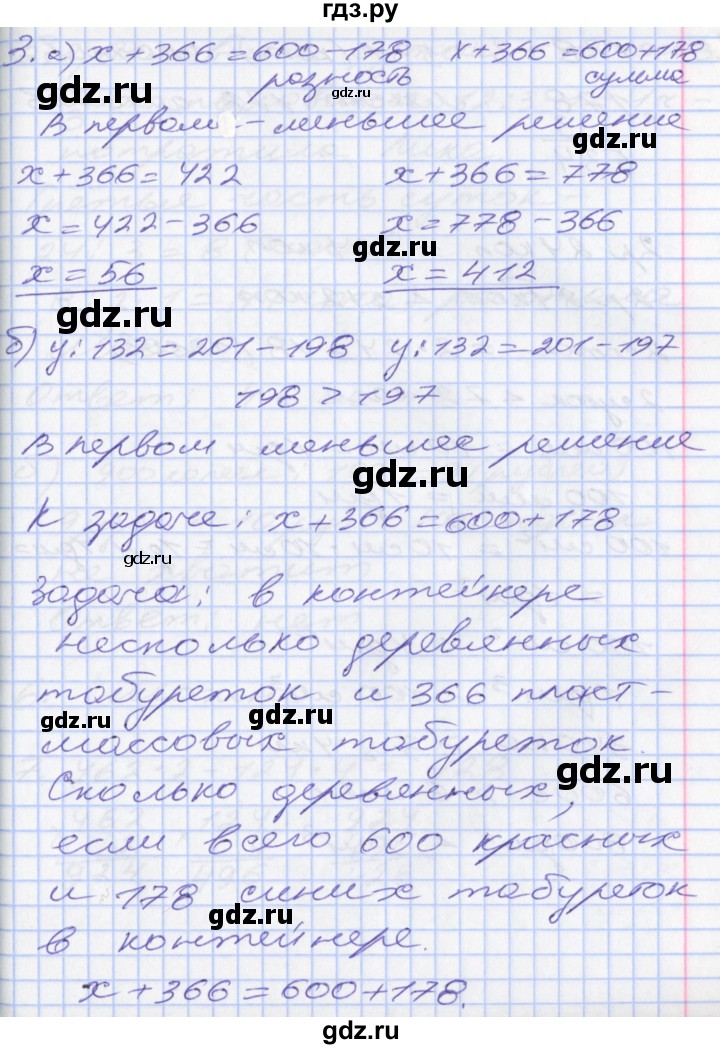 гдз.ру
3. а) x + 366 = 600 - 178   x + 366 = 600 + 178
разность   сумма
gdz.ru   gdz.ru
В первом - меньшее решение
x + 366 = 422   x + 366 = 778
x = 422 - 366   x = 778 - 366
gdz.ru
x = 56   x = 412
gdz.ru
б) y : 132 = 201 - 198   y : 132 = 201 - 197
198 > 197
В первом меньшее решение
gdz.ru
К задаче: x + 366 = 600 + 178
gdz.ru
Задача: в контейнере
несколько деревянных
табуреток и 366 пласт-
gdz.ru   gdz.ru
массовых табуреток.
gdz.ru
Сколько деревянных,
если всего 600 красных
и 178 синих табуреток
gdz.ru
в контейнере.
gdz.ru
x + 366 = 600 + 178.
gdz.ru